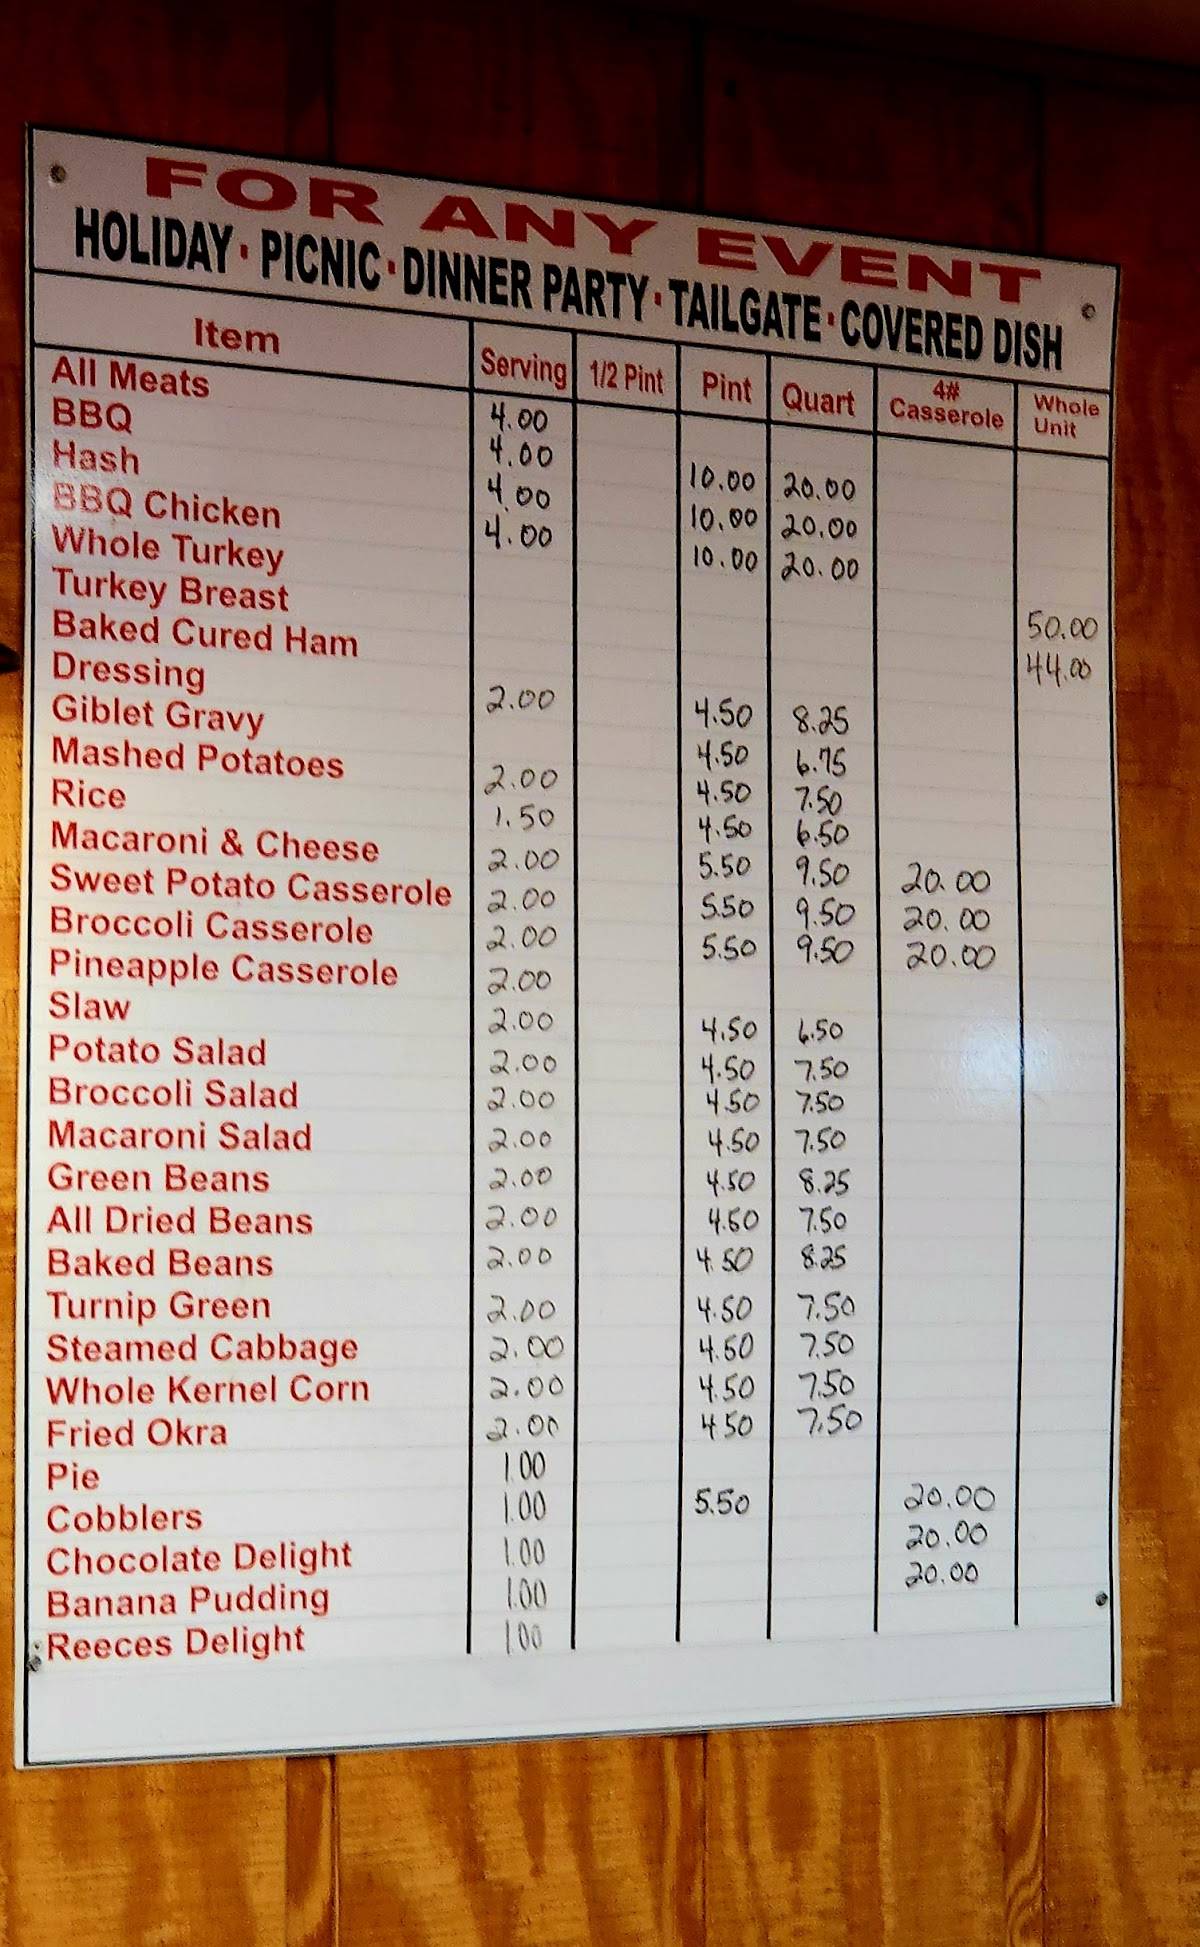 FOR ANY EVENT
HOLIDAY · PICNIC · DINNER PARTY · TAILGATE · COVERED DISH
Item Serving 1/2 Pint Pint Quart 4# Casserole Whole Unit
All Meats 4.00
BBQ 4.00 10.00 20.00
Hash 4.00 10.00 20.00
BBQ Chicken 4.00 10.00 20.00
Whole Turkey 50.00
Turkey Breast 44.00
Baked Cured Ham
Dressing 2.00 4.50 8.25
Giblet Gravy 4.50 6.75
Mashed Potatoes 2.00 4.50 7.50
Rice 1.50 4.50 6.50
Macaroni & Cheese 2.00 5.50 9.50 20.00
Sweet Potato Casserole 2.00 5.50 9.50 20.00
Broccoli Casserole 2.00 5.50 9.50 20.00
Pineapple Casserole 2.00
Slaw 2.00 4.50 6.50
Potato Salad 2.00 4.50 7.50
Broccoli Salad 2.00 4.50 7.50
Macaroni Salad 2.00 4.50 7.50
Green Beans 2.00 4.50 8.25
All Dried Beans 2.00 4.50 7.50
Baked Beans 2.00 4.50 8.25
Turnip Green 2.00 4.50 7.50
Steamed Cabbage 2.00 4.50 7.50
Whole Kernel Corn 2.00 4.50 7.50
Fried Okra 2.00 4.50 7.50
Pie 1.00
Cobblers 1.00 5.50 20.00
Chocolate Delight 1.00 20.00
Banana Pudding 1.00 20.00
Reeces Delight 1.00